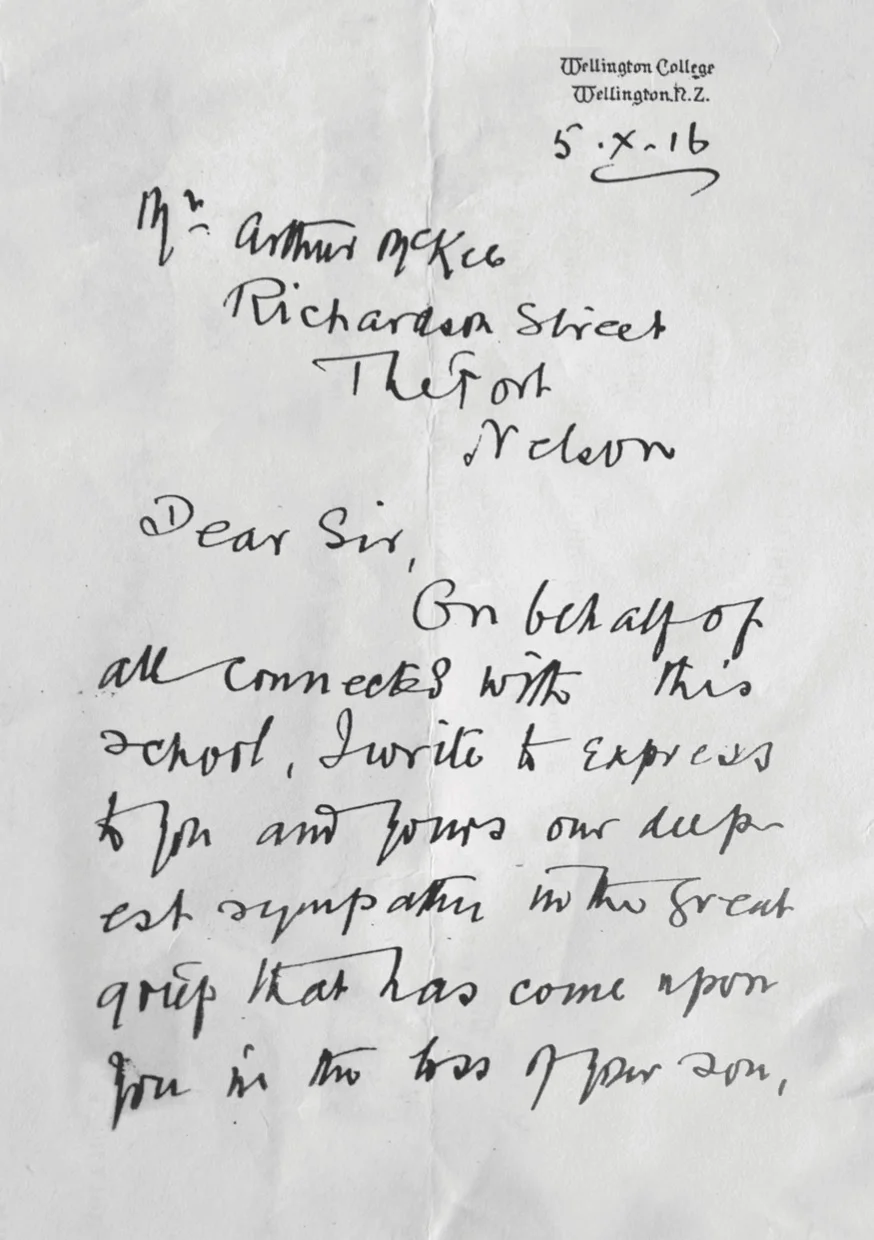 Wellington College
Wellington. N.Z.
5.X.16
Mr. Arthur McKee
Richardson Street
The Port
Nelson
Dear Sir,
On behalf of
all connected with this
school, I write to express
to you and yours our deep-
est sympathy in the great
grief that has come upon
you in the loss of your son,